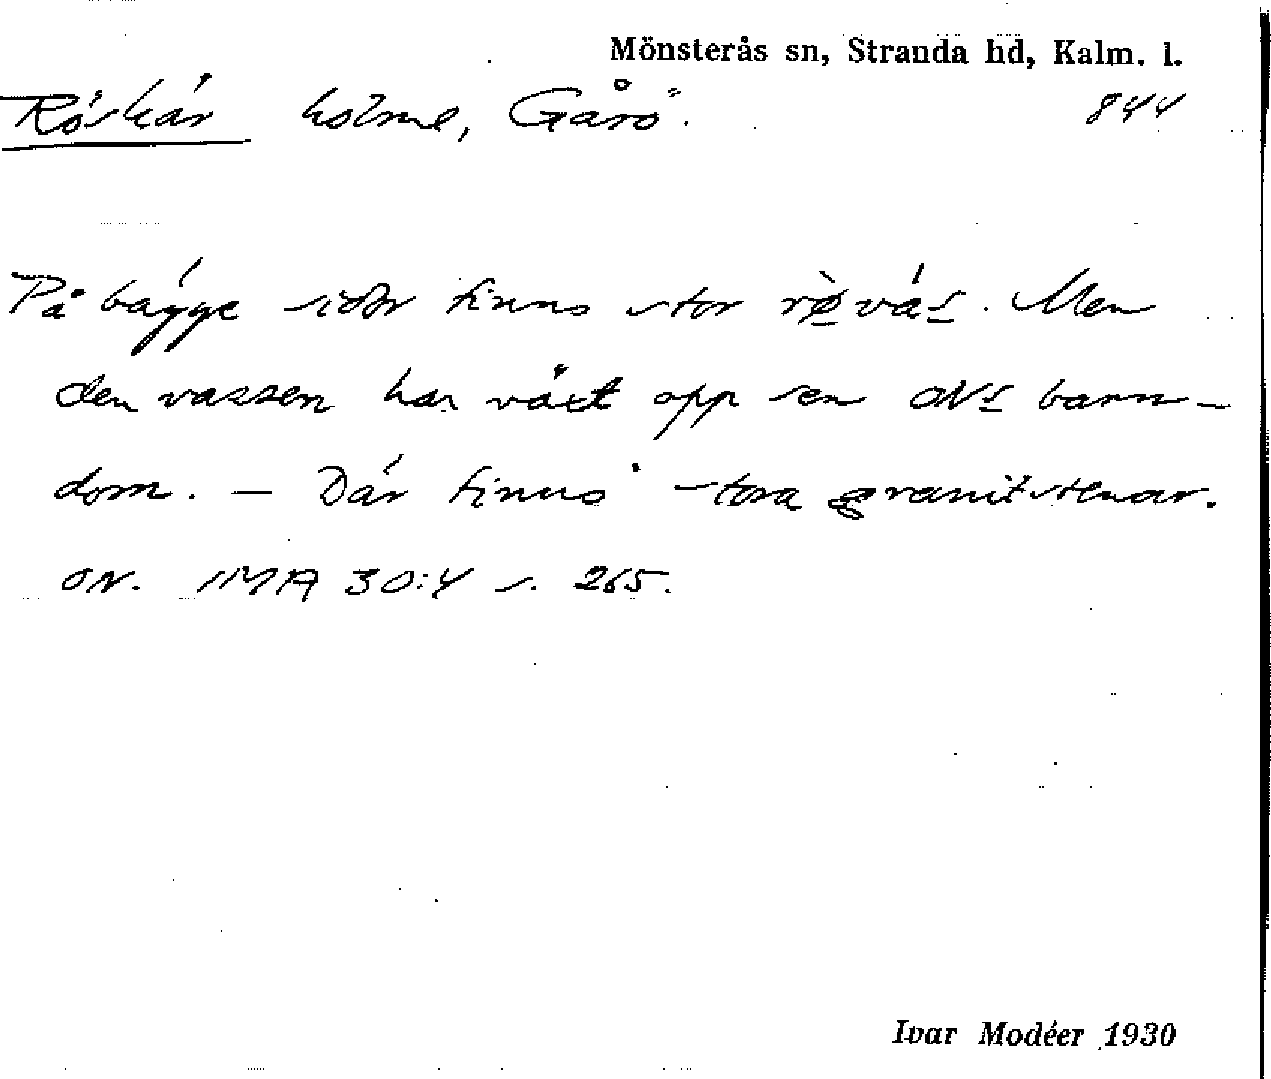 Mönsterås sn, Stranda hd, Kalm. l.
Rörskär holme, Gårö. 844
På bägge sidor finns stor rø̀vás. Men
den vassen har växt opp sen ONs barn-
dom. – Där finns stora granitstenar.
ON. IMA 30:4 s. 265.
Ivar Modéer 1930